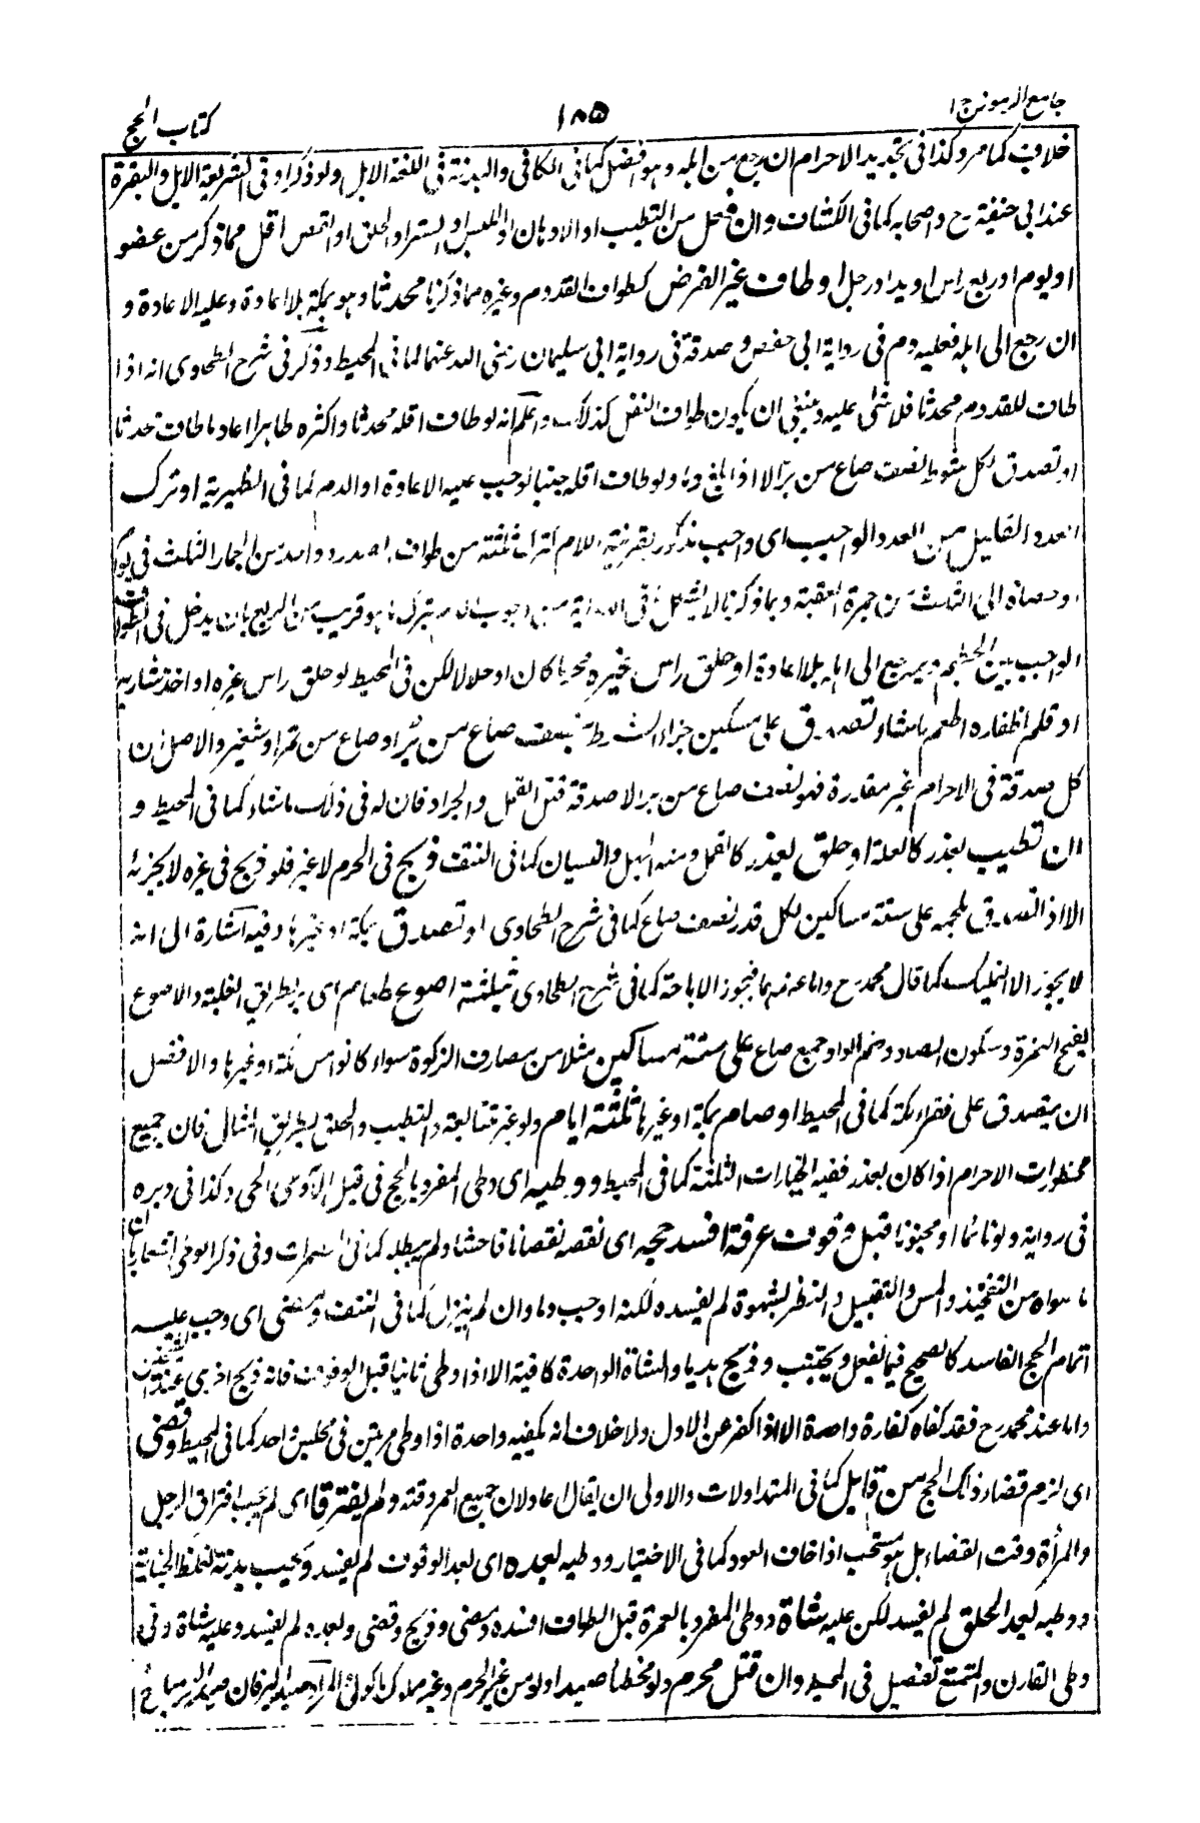 جامع الرموز ج ا
١٨٥
كتاب الحج
خلاف كما مر وكذا فى تجديد الاحرام ان رجع من اهله وهو افضل كما فى الكافى والبدنة فى اللغة الابل ولو ذكرا وفى الشريعة الابل والبقرة
عند ابى حنيفة رح واصحابه كما فى الكشاف وان فعل من التطيب او الادهان او اللبس او الستر او الحلق او القص اقل مما ذكر من عضو
او يوم او ربع راس او يد او رجل او طاف غير الفرض كطواف القدوم وغيره مما ذكرنا محدثا وهو بمكة بلا اعادة وعليه الاعادة و
ان رجع الى اهله فعليه دم فى رواية ابى حفص وصدقة فى رواية ابى سليمان رضى الله عنهما كما فى المحيط وذكر فى شرح الطحاوى انه اذا
طاف للقدوم محدثا فلا شئ عليه وينبغى ان يكون طواف النفل كذلك واعلم انه لو طاف اقله محدثا واكثره طاهرا اعاد ما طاف محدثا
او تصدق لكل شوط نصف صاع من بر الا اذا بلغ دما ولو طاف اقله جنبا لوجب عليه الاعادة او الدم كما فى الظهيرية او ترك
العدد القليل من العدد الواجب اى واجب مذكور بقرينة اللام كترك ثلثة من طواف الصدر وواحدة من الجمار الثلث فى يوم
او حصاة الى الثلث من جمرة العقبة وبما ذكرنا لا يشكل فى من وجوب الدم بترك ما هو قريب من الربع بان يدخل فى الطواف
الواجب بين الحطيم ويرجع الى اهله بلا اعادة او حلق راس غيره محرما كان او حلالا لكن فى المحيط لو حلق راس غيره او اخذ شاربه
او قلم اظفاره اطعم ما شاء تصدق على مسكين جزاء الشرط بنصف صاع من بر او صاع من تمر او شعير والاصل ان
كل صدقة فى الاحرام غير مقدرة فهو نصف صاع من بر الا صدقة قتل القمل والجراد فان له فى ذلك ما شاء كما فى المحيط و
ان تطيب بعذر كالعلة او حلق بعذر كالقمل ومنه الجهل والنسيان كما فى النتف ذبح فى الحرم لا غير فلو ذبح فى غيره لا يجزئه
الا اذا تصدق بلحمه على ستة مساكين لكل قدر نصف صاع كما فى شرح الطحاوى او تصدق بمكة او غيرها وفيه اشارة الى انه
لا يجوز الا التمليك كما قال محمد رح واما عندهما فيجوز الاباحة كما فى شرح الطحاوى بثلثة اصوع طعام اى بر بطريق الغلبة والاصوع
بفتح الهمزة وسكون الصاد وضم الواو جمع صاع على ستة مساكين مثلا من مصارف الزكوة سواء كانوا من مكة او غيرها والافضل
ان يتصدق على فقراء مكة كما فى المحيط او صام بمكة او غيرها ثلثة ايام ولو غير متتابعة والتطيب والحلق بطريق المثال فان جميع
محظورات الاحرام اذا كان بعذر ففيه الخيارات الثلثة كما فى المحيط ووطيه اى وطى المفرد بالحج فى قبل الآدمى الحى وكذا فى دبره
فى رواية ولو نائما او مجنونا قبل وقوف عرفة افسد حجه اى نقصه نقصانا فاحشا ولم يبطله كما فى المضمرات وفى ذكر الوطى اشعار بان
ما سواه من التفخيذ والمس والتقبيل والنظر لشهوة لم يفسده لكنه اوجب دما وان لم ينزل كما فى النتف ومضى اى وجب عليه
اتمام الحج الفاسد كالصحيح فيما يفعل ويجتنب وذبح هديا والشاة الواحدة كافية الا اذا وطى ثانيا قبل الوقوف فانه ذبح اخرى عند الشيخين
واما عند محمد رح فقد كفاه كفارة واحدة الا اذا كفر عن الاول ولا خلاف انه يكفيه واحدة اذا وطى مرتين فى مجلس واحد كما فى المحيط وقضى
اى لزم قضاء ذلك الحج من قابل كما فى المتداولات والاولى ان يقال اعاد لان جميع العمر وقته ولم يفترقا اى لم يجب افتراق الرجل
والمرأة وقت القضاء بل هو مستحب اذا خاف العود كما فى الاختيار ووطيه بعده اى بعد الوقوف لم يفسد ويجب بدنة لغلظ الجناية
ووطيه بعد الحلق لم يفسد لكن عليه شاة ووطى المفرد بالعمرة قبل الطواف افسده ومضى وذبح وقضى وبعده لم يفسد وعليه شاة وفى
وطى القارن والمتمتع تفصيل فى المحيط وان قتل محرم ولو مخطئا صيدا ولو من غير الحرم وغير مملوك ماكولا